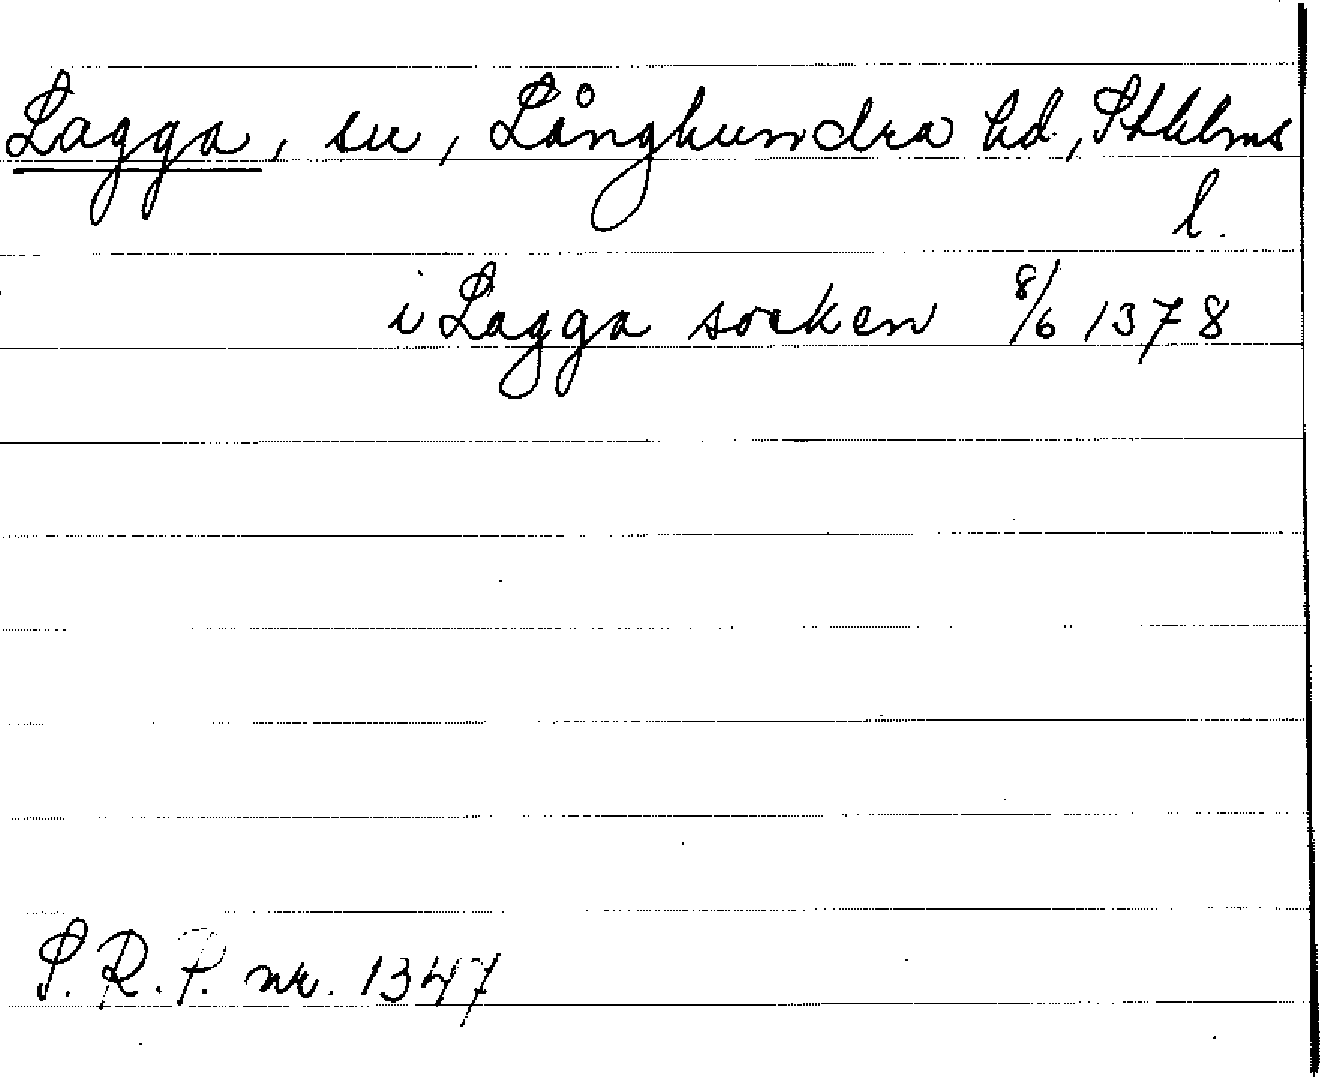 Lagga, sn, Långhundra hd, Sthlms
l.
i Lagga socken 8/6 1378
S.R.P. nr. 1347